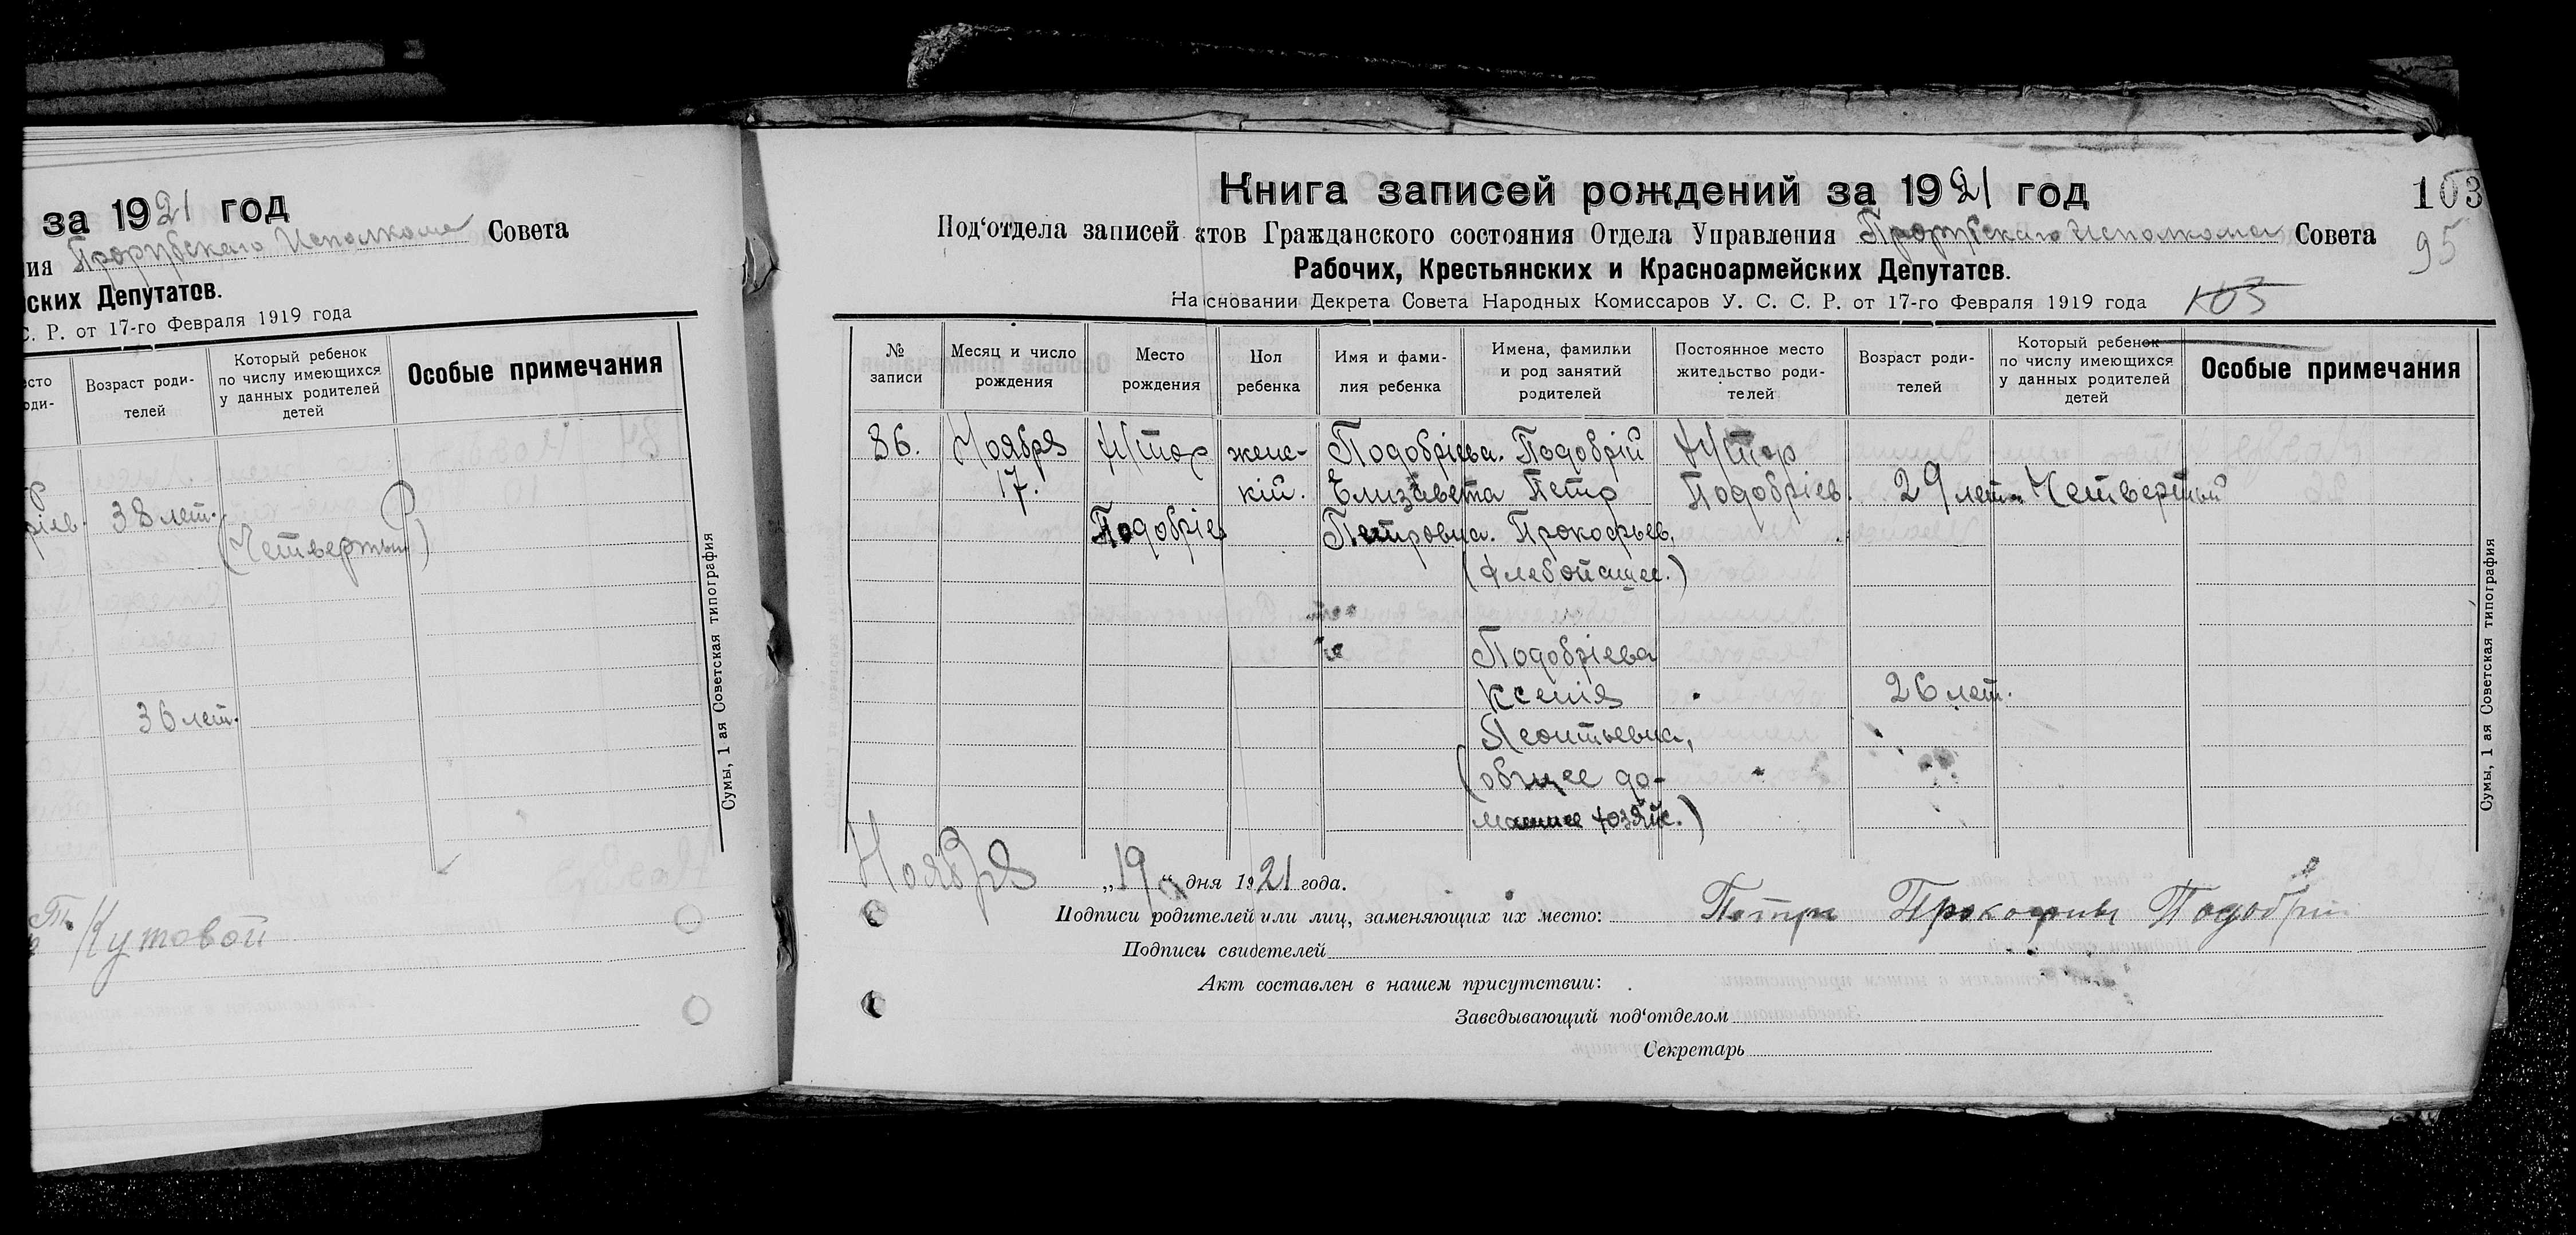 за 1921 год
ия Прорубскаго Исполкома Совета
ских Депутатов.
С. Р. от 17-го Февраля 1919 года
сто
оди-
Возраст роди-
телей
Который ребенок
по числу имеющихся
у данных родителей
детей
Особые примечания
38 лет.
(Четвертый)
36 лет.
Сумы, 1 ая Советская типография
Кутовой
Книга записей рождений за 1921 год
103
Под‘отдела записей актов Гражданского состояния Отдела Управления Прорубскаго Исполкома Совета
95
Рабочих, Крестьянских и Красноармейских Депутатов.
На сновании Декрета Совета Народных Комиссаров У. С. С. Р. от 17-го Февраля 1919 года
103
№
записи
Месяц и число
рождения
Место
рождения
Пол
ребенка
Имя и фами-
лия ребенка
Имена, фамильи
и род занятий
родителей
Постоянное место
жительство роди-
телей
Возраст роди-
телей
Который ребенок
по числу имеющихся
у данных родителей
детей
Особые примечания
86.
Ноября
17.
Хутор
Подобріев
женс-
кій.
Подобріева.
Елизавета
Петровна.
Подобрій
Петр
Прокофьев.
(Хлебопашец.)
Подобріева
Ксенія
Леонтьевна,
(общее до-
машнее хозяйс.)
Хутор
Подобріев.
29 лет.
26 лет.
Четвертый
Сумы, 1 ая Советская типография
Ноября „19“ дня 1921 года.
Подписи родителей или лиц, заменяющих их место: Петр Прокофьев Подобрій
Подписи свидетелей
Акт составлен в нашем присутствии:
Заведывающий под‘отделом
Секретарь